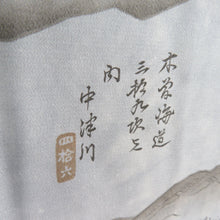 木曽海道
三拾九次之
内
中津川
四拾六